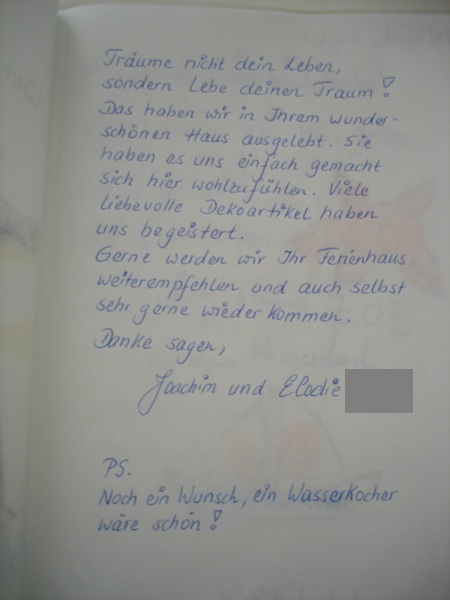 Träume nicht dein Leben,
sondern Lebe deinen Traum!
Das haben wir in Ihrem wunder-
schönen Haus ausgelebt. Sie
haben es uns einfach gemacht
sich hier wohlzufühlen. Viele
liebevolle Dekoartikel haben
uns begeistert.
Gerne werden wir Ihr Ferienhaus
weiterempfehlen und auch selbst
sehr gerne wieder kommen.
Danke sagen,
Joachim und Elodie
PS.
Noch ein Wunsch, ein Wasserkocher
wäre schön!